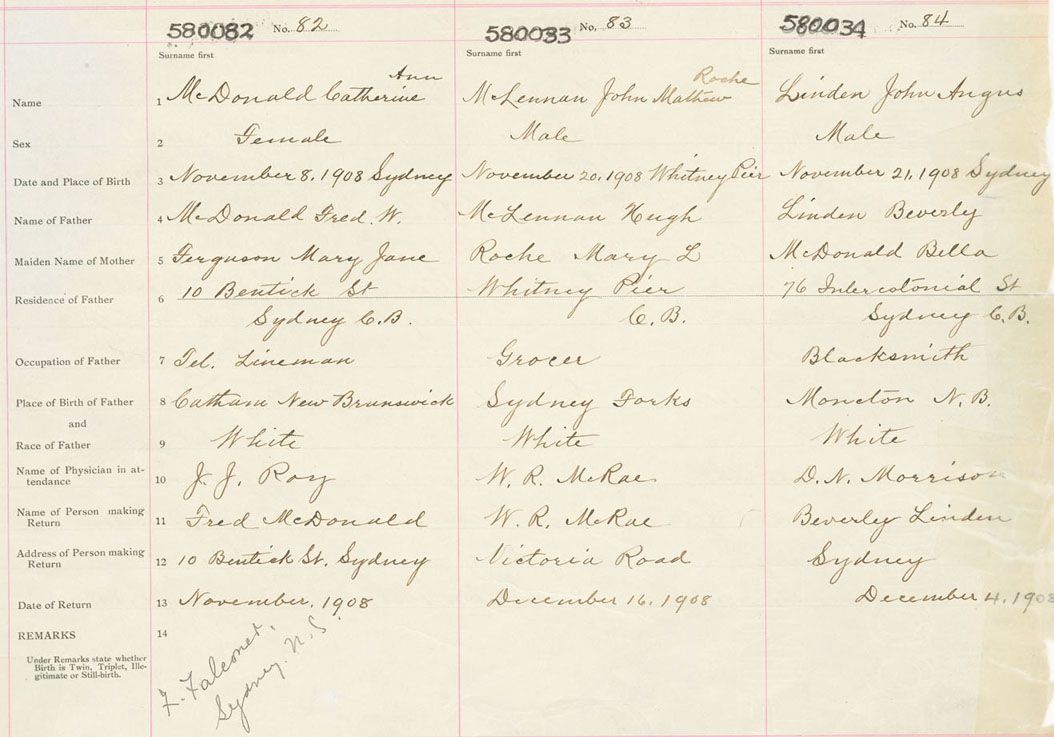 580082 No. 82 580033 No. 83 580034 No. 84
Surname first Surname first Surname first
Ann Roche
Name 1 McDonald Catherine McLennan John Mathew Linden John Angus
Sex 2 Female Male Male
Date and Place of Birth 3 November 8, 1908 Sydney November 20, 1908 Whitney Pier November 21, 1908 Sydney
Name of Father 4 McDonald Fred. W. McLennan Hugh Linden Beverly
Maiden Name of Mother 5 Ferguson Mary Jane Roche Mary L McDonald Bella
Residence of Father 6 10 Bentick St Whitney Pier 76 Intercolonial St
Sydney C.B. C.B. Sydney C.B.
Occupation of Father 7 Tel. Lineman Grocer Blacksmith
Place of Birth of Father 8 Catham New Brunswick Sydney Forks Moncton N.B.
and
Race of Father 9 White White White
Name of Physician in at-
tendance 10 J. J. Roy W. R. McRae D. N. Morrison
Name of Person making
Return 11 Fred McDonald W. R. McRae Beverly Linden
Address of Person making
Return 12 10 Bentick St. Sydney Victoria Road Sydney
Date of Return 13 November, 1908 December 16, 1908 December 4, 1908
REMARKS 14
Under Remarks state whether
Birth is Twin, Triplet, Ille-
gitimate or Still-birth.
F. Falconer.
Sydney. N.S.